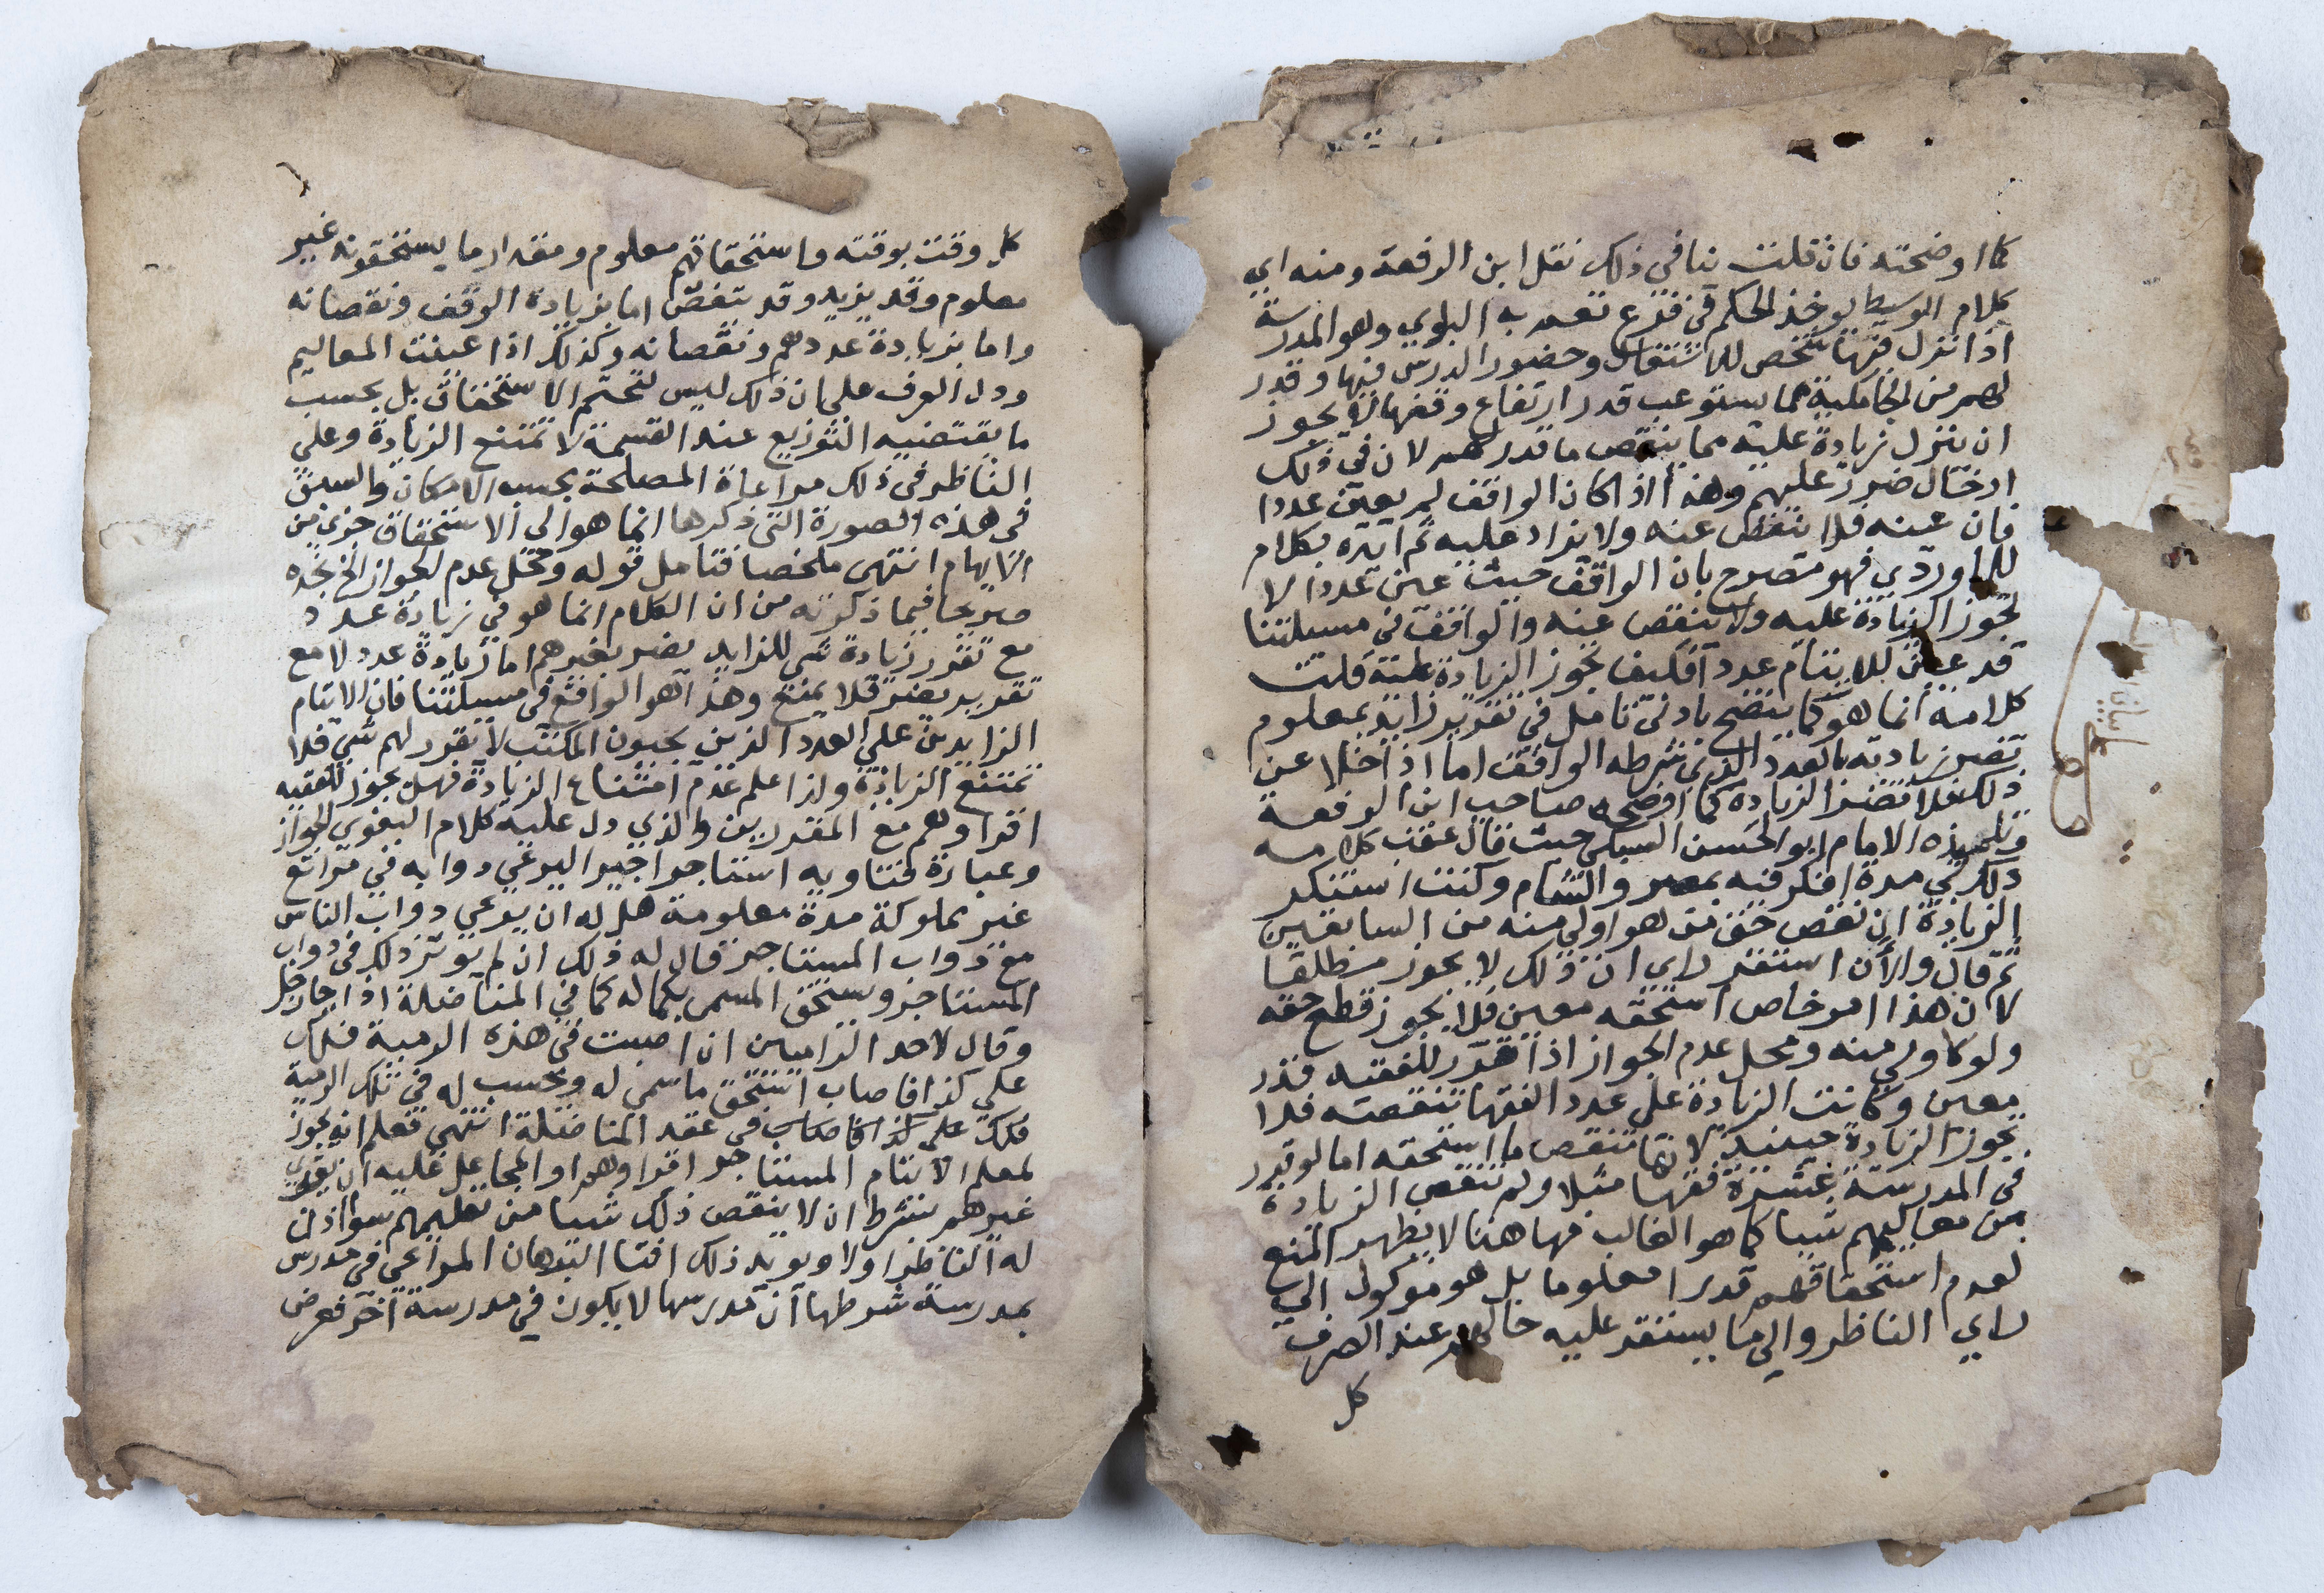 كما اوضحته فان قلت ينافي ذلك نقل ابن الرفعة ومنه اي
كلام الوسيط يوخذ الحكم في فرع تعم به البلوي وهو المدرسة
اذا نزل فيها شخص للاشتغال وحضور الدرس فيها وقدر
لهم من الجامكية مما يستوعب قدر ارتفاع وقفها لا يجوز
ان ينزل زيادة عليه مما ينقص ما قدر لهم لان في ذلك
ادخال ضرر عليهم وهذا اذا كان الواقف لم يعين عددا
فان عينه فلا ينقص عنه ولا يزاد عليه ثم ايده بكلام
للماوردي فهو مصرح بان الواقف حيث عين عددا لا
تجوز الزيادة عليه ولا ينقص عنه والواقف في مسيلتنا
قد عين للايتام عددا فكيف تجوز الزيادة عليه قلت
كلامه انما هو كما يتضح بادني تامل في تقرير زايد بمعلوم
تضر زيادته بالعدد الذي شرطه الواقف اما اذا خلا عن
ذلك فلا تضر الزيادة كما اوضحه صاحب ابن الرفعة
وتلميذه الامام ابو الحسن السبكي حيث قال عقب كلامه
ذلك لي مدة افكر فيه بمصر والشام وكنت استنكر
الزيادة ان نقص حق من هو اولي منه من السابقين
ثم قال والان استقر راي ان ذلك لا يجوز مطلقا
لان هذا امر خاص استحقه معين فلا يجوز قطع حقه
ولو كاولي منه ومحل عدم الجواز اذا قدر للفقيه قدر
معين وكانت الزيادة علي عدد الفقها تنقصه فلا
تجوز الزيادة حينيذ لانها تنقص ما استحقه اما لو قرر
في المدرسة عشرة فقها مثلا ولم تنقص الزيادة
من معاليمهم شيا كما هو الغالب فها هنا لا يظهر المنع
لعدم استحقاقهم قدرا معلوما بل هو موكول الي
راي الناظر والي ما يستقر عليه حالهم عند الصرف
كل
كل وقت بوقته واستحقاقهم معلوم ومقدار ما يستحقونه غير
معلوم وقد يزيد وقد ينقص اما بزيادة الوقف ونقصانه
واما بزيادة عددهم ونقصانه وكذلك اذا عينت المعاليم
ودل العرف علي ان ذلك ليس لتحتم الاستحقاق بل بحسب
ما يقتضيه التوزيع عند القسمة لا تمتنع الزيادة وعلي
الناظر في ذلك مراعاة المصلحة بحسب الامكان والسبق
في هذه الصورة التي ذكرها انما هو الي الاستحقاق جزي من
الابهام انتهي ملخصا فتامل قوله ومحل عدم الجواز الخ تجده
صريحا فيما ذكرته من ان الكلام انما هو في زيادة عدد
مع تقرر زيادة شي للزايد يضر بغيرهم اما زيادة عدد لا مع
تقرير يضر فلا يمنع وهذا هو الواقع في مسيلتنا فان الايتام
الزايدين علي العدد الذين يجيون المكتب لا يقرر لهم شي فلا
تمتنع الزيادة واذا علم عدم امتناع الزيادة فهل يجوز للفقيه
اقراوهم مع المقررين والذي دل عليه كلام البغوي الجواز
وعبارة فتاويه استاجر اجيرا ليرعي دوابه في مراتع
غير مملوكة مدة معلومة هل له ان يرعي دواب الناس
مع دواب المستاجر قال له ذلك ان لم يوثر ذلك في دواب
المستاجر ويستحق المسمي بكماله كما في المناضلة اذا جا رجل
وقال لاحد الراميين ان اصبت في هذه الرمية فلك
علي كذا فاصاب استحق ما سمي له ويحسب له في تلك الرمية
فلك علي كذا فاصاب في عقد المناضلة انتهي فعلم انه يجوز
لمعلم الايتام المستاجر اقراوهم او المجاعل عليه ان يقري
غيرهم بشرط ان لا ينقص ذلك شيا من تعليمهم سوا اذن
له الناظر اولا ويويد ذلك افتا البرهان المراغي في مدرس
بمدرسة شرطها ان مدرسها لا يكون في مدرسة اخر فعرض